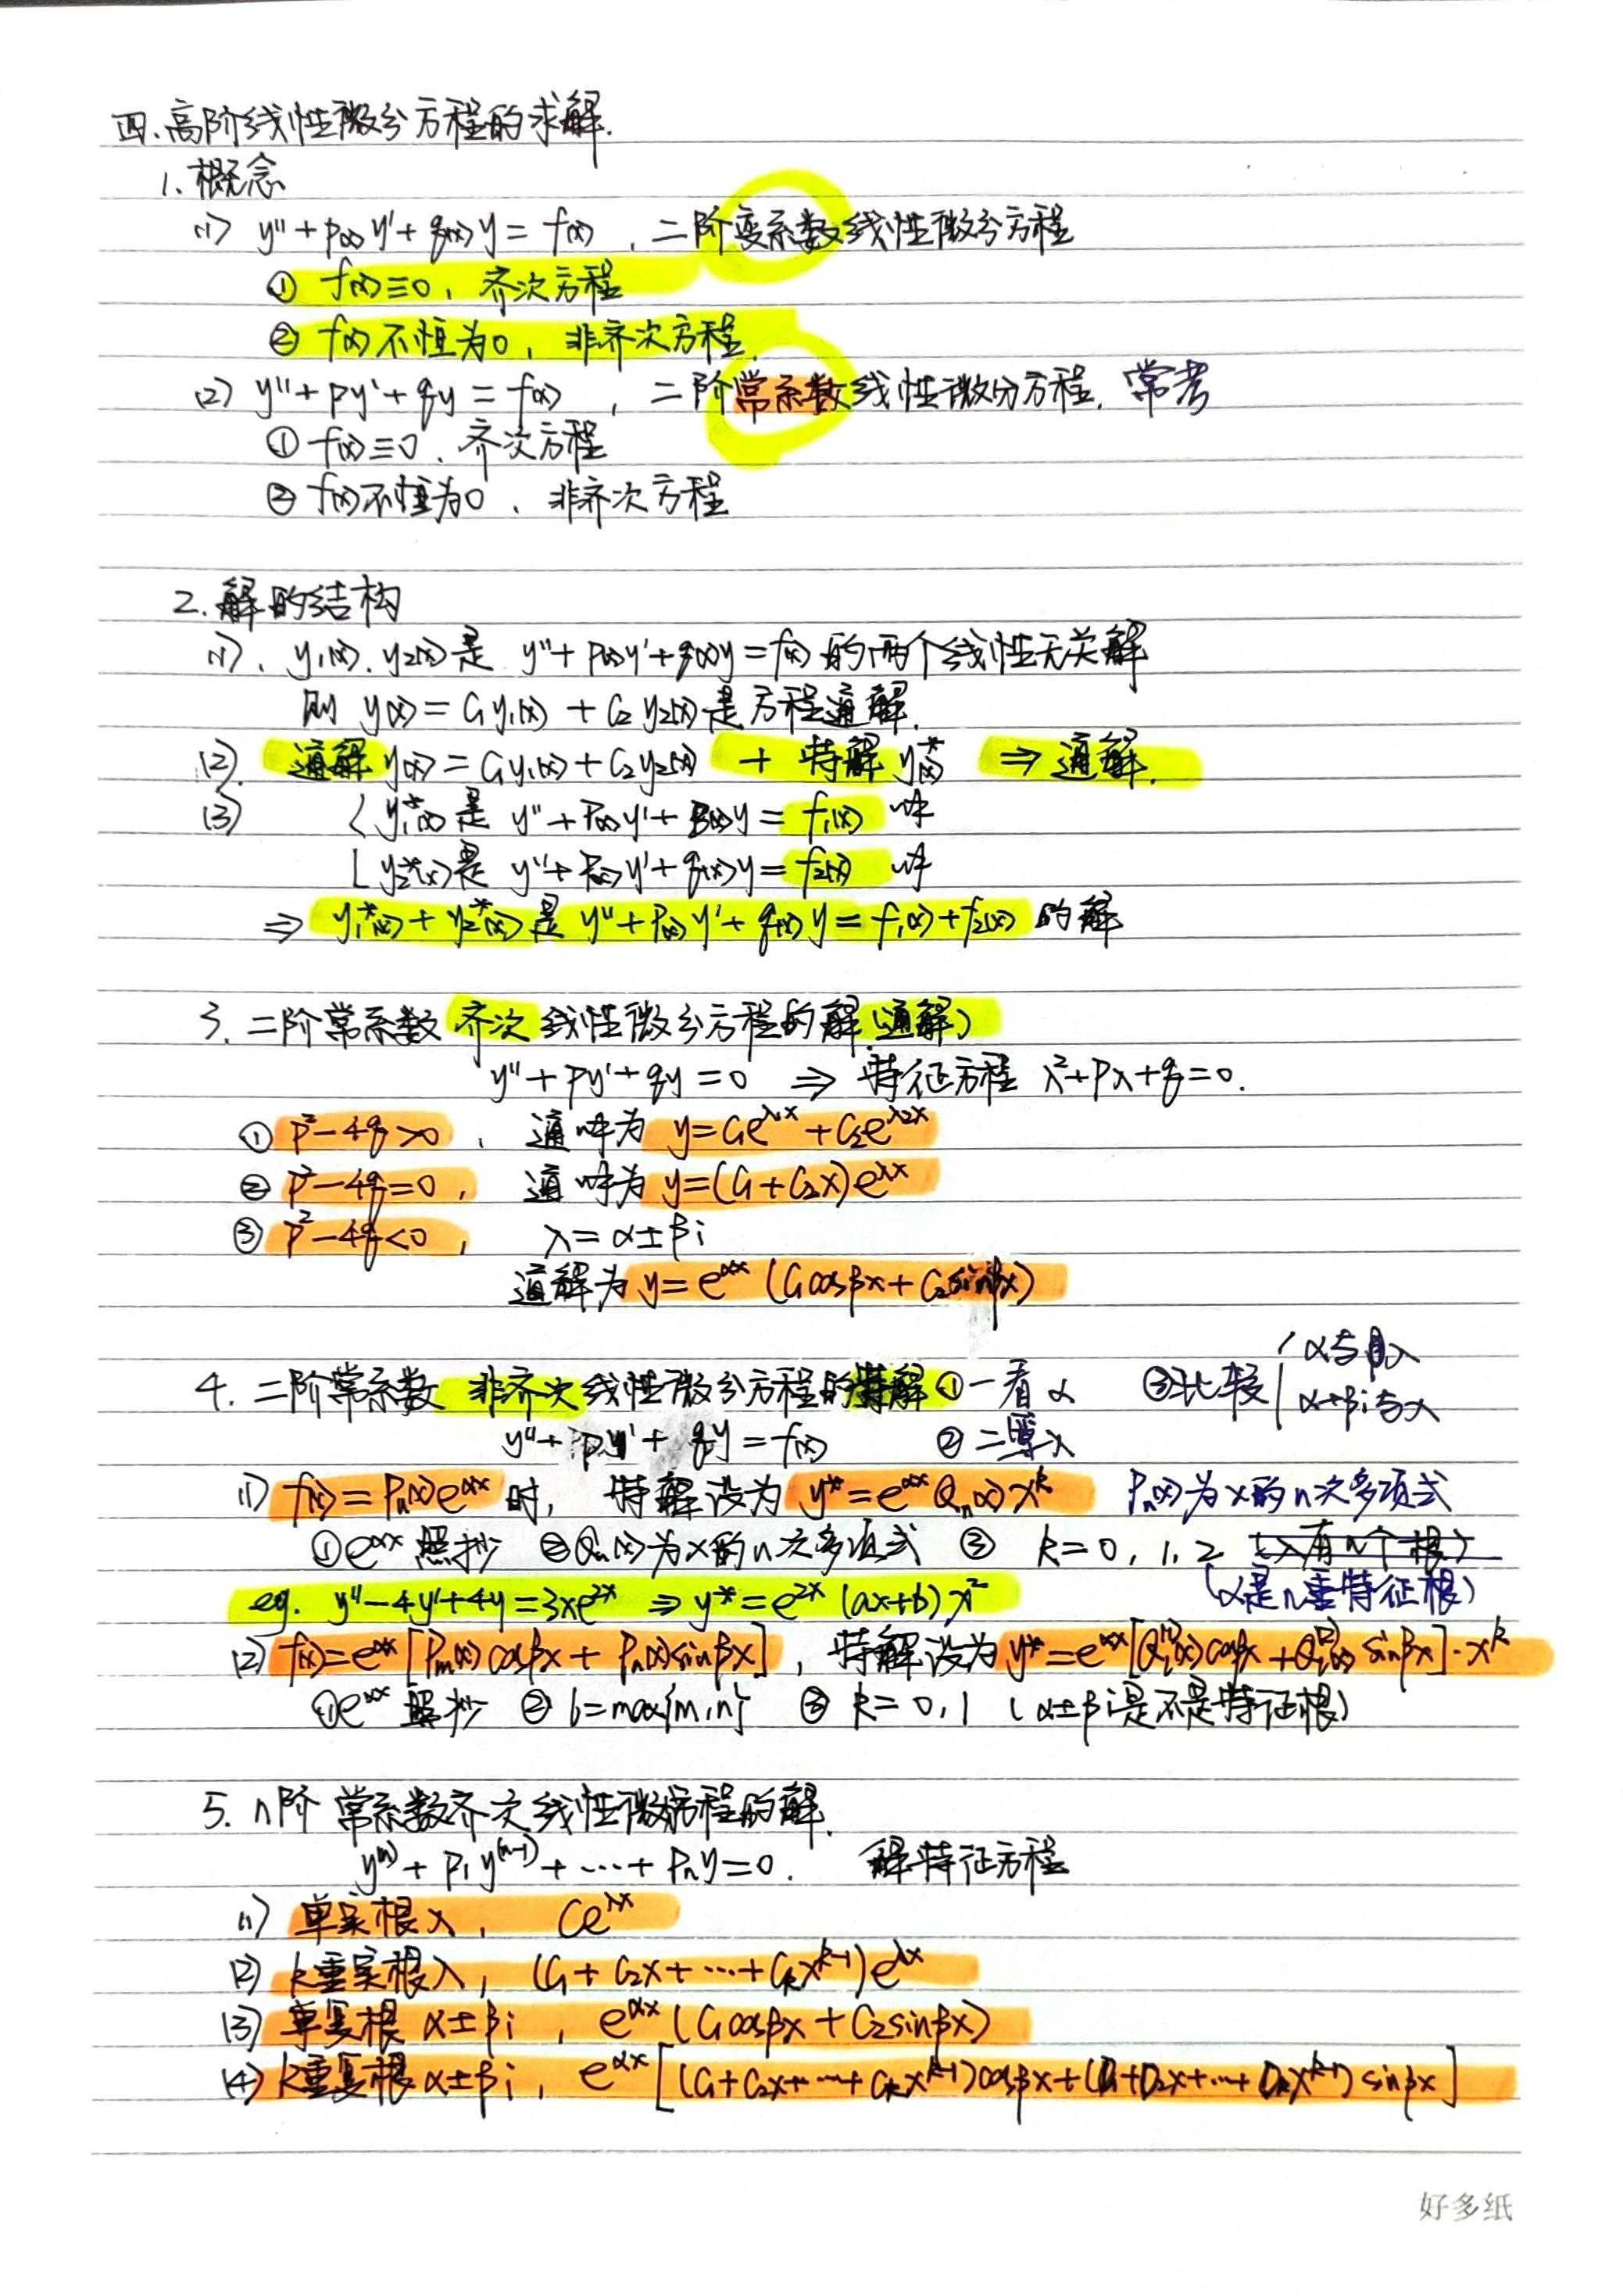 四、高阶线性微分方程的求解.
1. 概念
(1) y''+p(x)y'+q(x)y=f(x)，二阶变系数线性微分方程
① f(x)≡0，齐次方程
② f(x)不恒为0，非齐次方程.
(2) y''+py'+qy=f(x)，二阶常系数线性微分方程. 常考
① f(x)≡0、齐次方程
② f(x)不恒为0、非齐次方程
2. 解的结构
(1)、y₁(x).y₂(x)是 y''+p(x)y'+q(x)y=f(x)的两个线性无关解
则 y(x)=C₁y₁(x)+C₂y₂(x)是方程通解.
(2). 通解y(x)=C₁y₁(x)+C₂y₂(x) + 特解y*(x) ⇒ 通解.
(3) { y₁*(x)是 y''+p(x)y'+q(x)y=f₁(x) 解
y₂*(x)是 y''+p(x)y'+q(x)y=f₂(x) 解
⇒ y₁*(x)+y₂*(x)是 y''+p(x)y'+q(x)y=f₁(x)+f₂(x) 的解
3. 二阶常系数齐次线性微分方程的解(通解)
y''+py'+qy=0 ⇒ 特征方程 λ²+pλ+q=0.
① p²-4q>0，通解为 y=C₁e^{λ₁x}+C₂e^{λ₂x}
② p²-4q=0，通解为 y=(C₁+C₂x)e^{λx}
③ p²-4q<0，λ=α±βi
通解为 y=e^{αx}(C₁cosβx+C₂sinβx)
4. 二阶常系数非齐次线性微分方程的特解 ①一看α ③比较{α与λ
α+βi与λ
y''+py'+qy=f(x) ②二算λ
(1) f(x)=Pₙ(x)e^{αx}时，特解设为 y*=e^{αx}Qₙ(x)x^k Pₙ(x)为x的n次多项式
①e^{αx}照抄 ②Qₙ(x)为x的n次多项式 ③ k=0,1,2 (λ有n个根)
(α是n重特征根)
eg. y''-4y'+4y=3xe^{2x} ⇒ y*=e^{2x}(ax+b)x²
(2) f(x)=e^{αx}[Pₘ(x)cosβx+Pₙ(x)sinβx]，特解设为y*=e^{αx}[Qₗ⁽¹⁾(x)cosβx+Qₗ⁽²⁾(x)sinβx]·x^k
①e^{αx}照抄 ② l=max{m,n} ③ k=0,1 (α±βi是不是特征根)
5. n阶常系数齐次线性微分方程的解.
y^{(n)}+p₁y^{(n-1)}+⋯+pₙy=0. 解特征方程
(1) 单实根λ， Ce^{λx}
(2) k重实根λ，(C₁+C₂x+⋯+Cₖx^{k-1})e^{λx}
(3) 单复根α±βi，e^{αx}(C₁cosβx+C₂sinβx)
(4) k重复根α±βi，e^{αx}[(C₁+C₂x+⋯+Cₖx^{k-1})cosβx+(D₁+D₂x+⋯+Dₖx^{k-1})sinβx]
好多纸